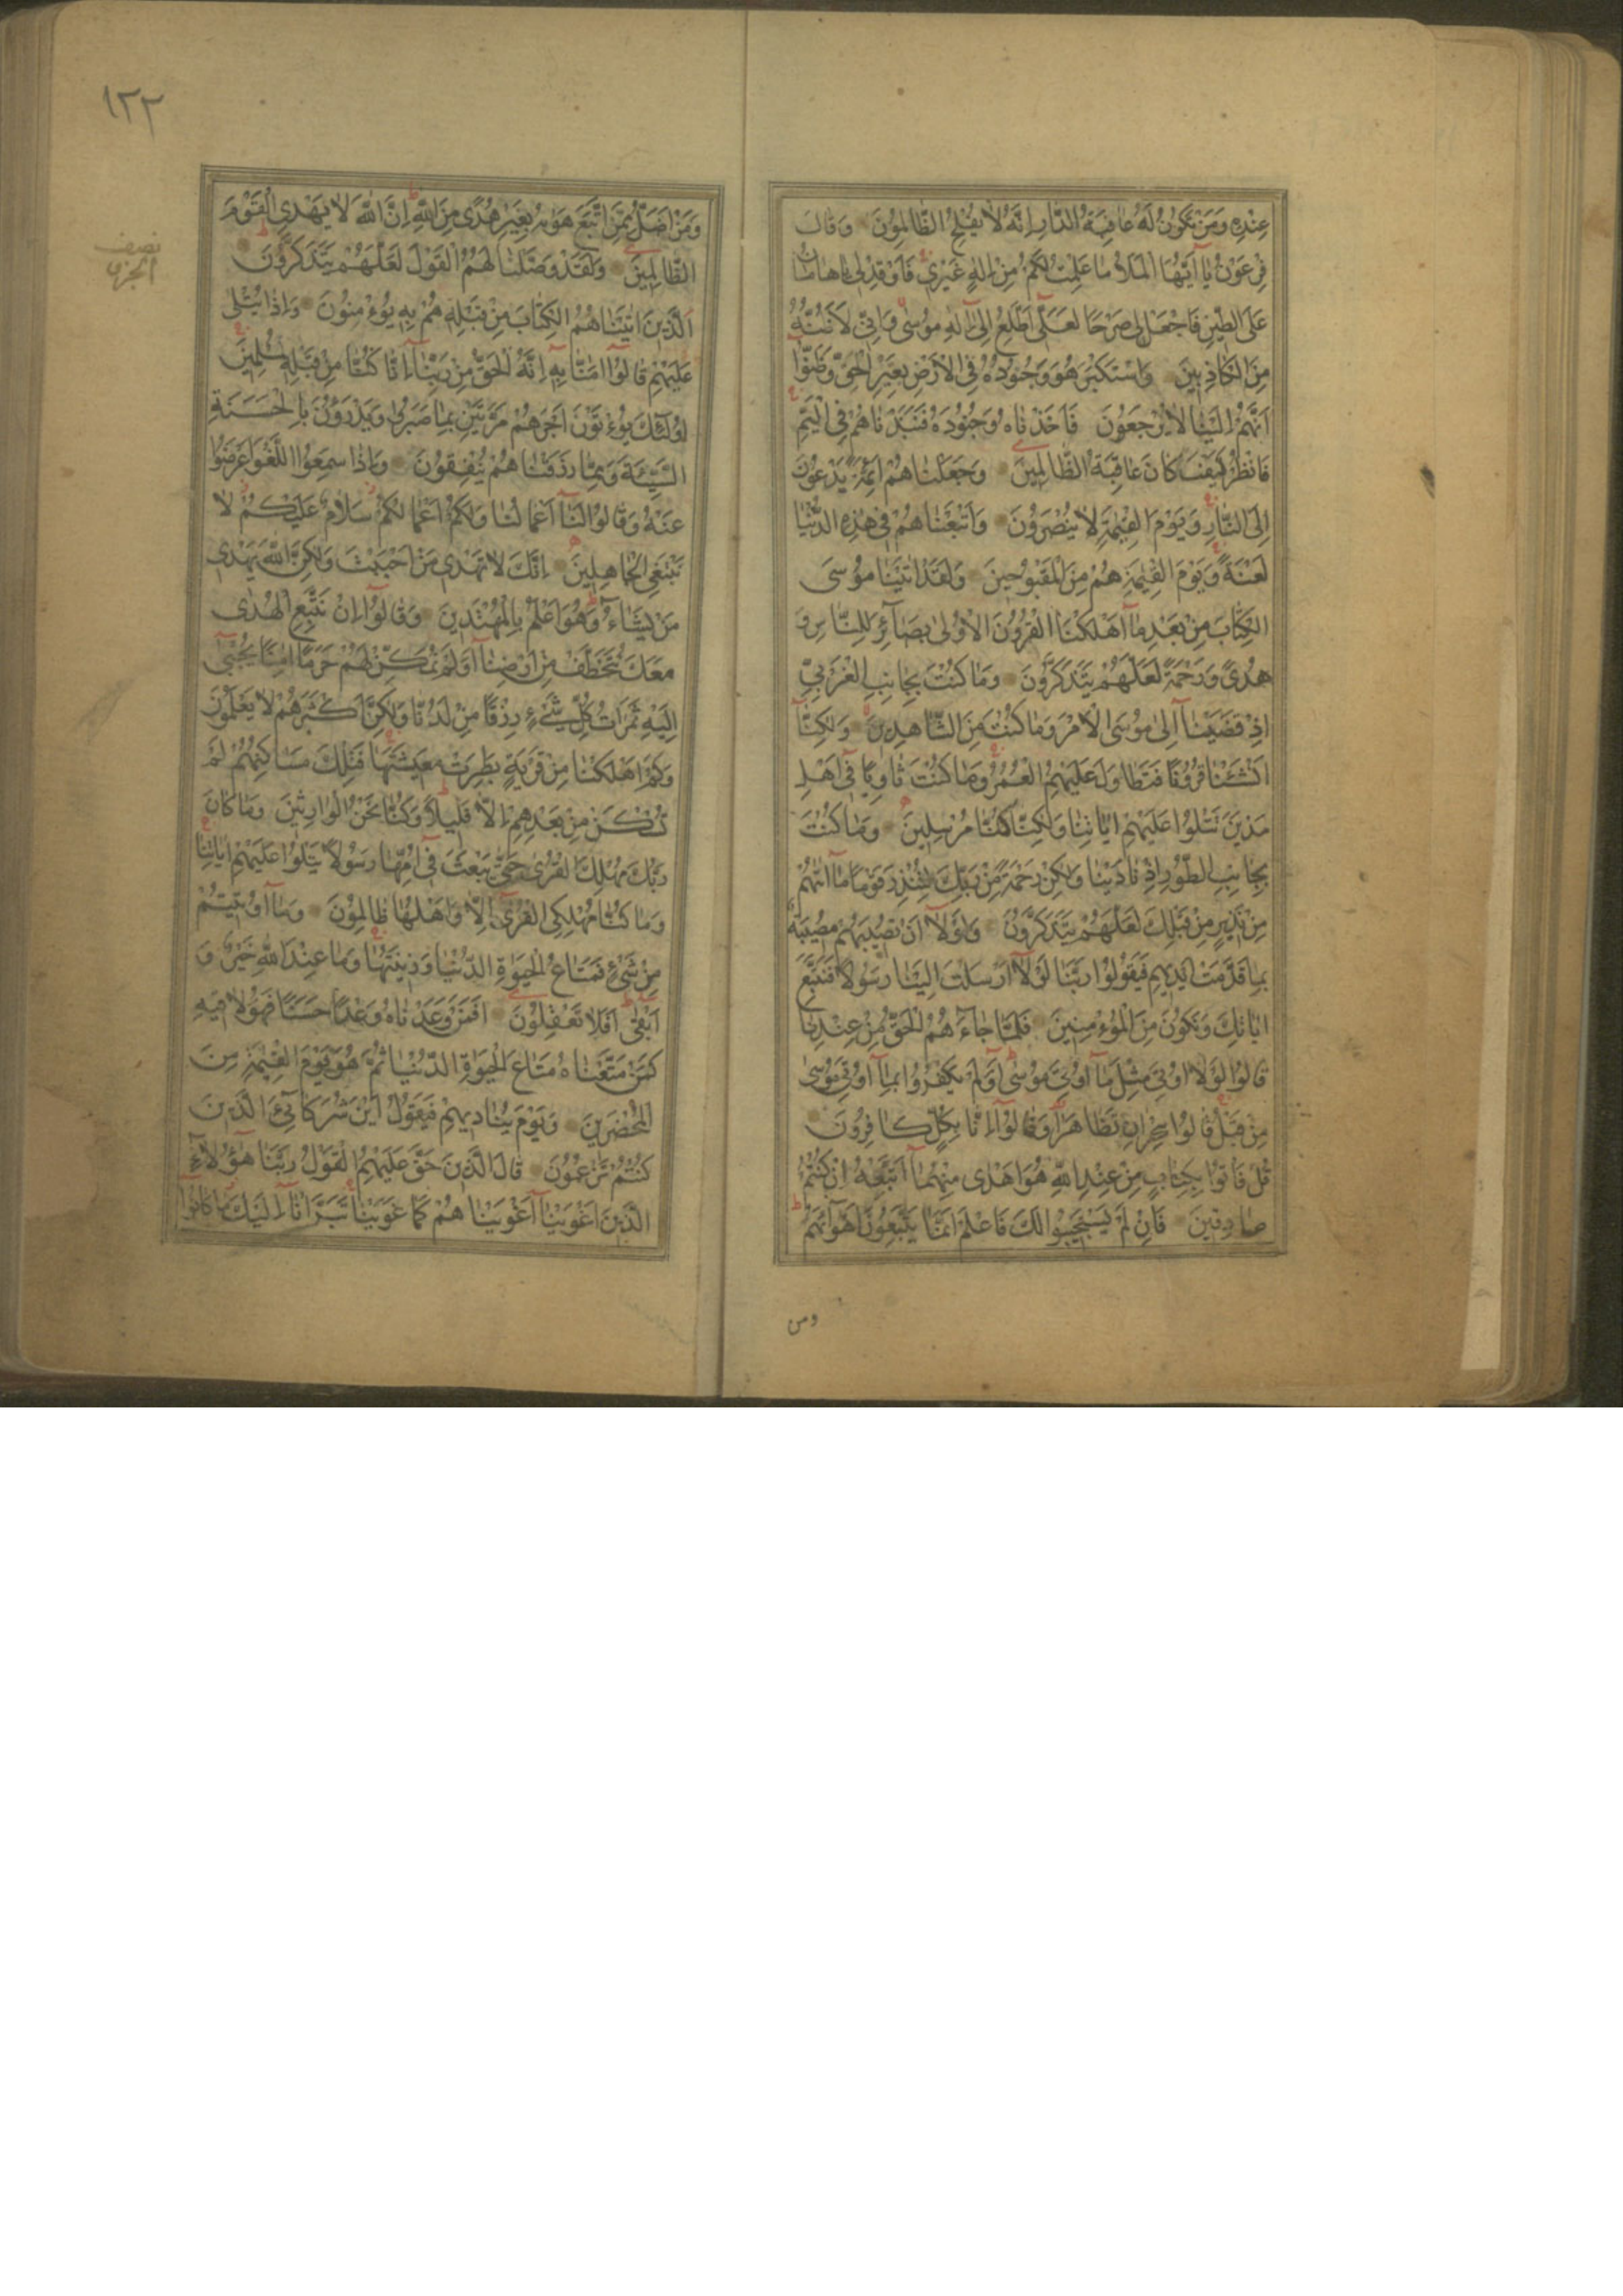 عِنْدِهِ وَمَنْ تَكُونُ لَهُ عَاقِبَةُ الدَّارِ اِنَّهُ لَا يُفْلِحُ الظَّالِمُونَ وَقَالَ
فِرْعَوْنُ يَا اَيُّهَا الْمَلَأُ مَا عَلِمْتُ لَكُمْ مِنْ اِلٰهٍ غَيْرِي فَاَوْقِدْ لِي يَا هَامَانُ
عَلَى الطِّينِ فَاجْعَلْ لِي صَرْحًا لَعَلِّي اَطَّلِعُ اِلٰى اِلٰهِ مُوسٰى وَاِنِّي لَاَظُنُّهُ
مِنَ الْكَاذِبِينَ وَاسْتَكْبَرَ هُوَ وَجُنُودُهُ فِي الْاَرْضِ بِغَيْرِ الْحَقِّ وَظَنُّوا
اَنَّهُمْ اِلَيْنَا لَا يُرْجَعُونَ فَاَخَذْنَاهُ وَجُنُودَهُ فَنَبَذْنَاهُمْ فِي الْيَمِّ
فَانْظُرْ كَيْفَ كَانَ عَاقِبَةُ الظَّالِمِينَ وَجَعَلْنَاهُمْ اَئِمَّةً يَدْعُونَ
اِلَى النَّارِ وَيَوْمَ الْقِيٰمَةِ لَا يُنْصَرُونَ وَاَتْبَعْنَاهُمْ فِي هٰذِهِ الدُّنْيَا
لَعْنَةً وَيَوْمَ الْقِيٰمَةِ هُمْ مِنَ الْمَقْبُوحِينَ وَلَقَدْ اٰتَيْنَا مُوسَى
الْكِتَابَ مِنْ بَعْدِ مَا اَهْلَكْنَا الْقُرُونَ الْاُولٰى بَصَائِرَ لِلنَّاسِ وَ
هُدًى وَرَحْمَةً لَعَلَّهُمْ يَتَذَكَّرُونَ وَمَا كُنْتَ بِجَانِبِ الْغَرْبِيِّ
اِذْ قَضَيْنَا اِلٰى مُوسَى الْاَمْرَ وَمَا كُنْتَ مِنَ الشَّاهِدِينَ وَلٰكِنَّا
اَنْشَئْنَا قُرُونًا فَتَطَاوَلَ عَلَيْهِمُ الْعُمُرُ وَمَا كُنْتَ ثَاوِيًا فِي اَهْلِ
مَدْيَنَ تَتْلُوا عَلَيْهِمْ اٰيَاتِنَا وَلٰكِنَّا كُنَّا مُرْسِلِينَ وَمَا كُنْتَ
بِجَانِبِ الطُّورِ اِذْ نَادَيْنَا وَلٰكِنْ رَحْمَةً مِنْ رَبِّكَ لِتُنْذِرَ قَوْمًا مَا اَتٰيهُمْ
مِنْ نَذِيرٍ مِنْ قَبْلِكَ لَعَلَّهُمْ يَتَذَكَّرُونَ وَلَوْلَا اَنْ تُصِيبَهُمْ مُصِيبَةٌ
بِمَا قَدَّمَتْ اَيْدِيهِمْ فَيَقُولُوا رَبَّنَا لَوْلَا اَرْسَلْتَ اِلَيْنَا رَسُولًا فَنَتَّبِعَ
اٰيَاتِكَ وَنَكُونَ مِنَ الْمُؤْمِنِينَ فَلَمَّا جَاءَهُمُ الْحَقُّ مِنْ عِنْدِنَا
قَالُوا لَوْلَا اُوتِيَ مِثْلَ مَا اُوتِيَ مُوسٰى اَوَلَمْ يَكْفُرُوا بِمَا اُوتِيَ مُوسٰى
مِنْ قَبْلُ قَالُوا سِحْرَانِ تَظَاهَرَا وَقَالُوا اِنَّا بِكُلٍّ كَافِرُونَ
قُلْ فَأْتُوا بِكِتَابٍ مِنْ عِنْدِ اللّٰهِ هُوَ اَهْدٰى مِنْهُمَا اَتَّبِعْهُ اِنْ كُنْتُمْ
صَادِقِينَ فَاِنْ لَمْ يَسْتَجِيبُوا لَكَ فَاعْلَمْ اَنَّمَا يَتَّبِعُونَ اَهْوَاءَهُمْ
ومن
١٢٢
نصف
الجزء
وَمَنْ اَضَلُّ مِمَّنِ اتَّبَعَ هَوٰيهُ بِغَيْرِ هُدًى مِنَ اللّٰهِ اِنَّ اللّٰهَ لَا يَهْدِي الْقَوْمَ
الظَّالِمِينَ وَلَقَدْ وَصَّلْنَا لَهُمُ الْقَوْلَ لَعَلَّهُمْ يَتَذَكَّرُونَ
اَلَّذِينَ اٰتَيْنَاهُمُ الْكِتَابَ مِنْ قَبْلِهِ هُمْ بِهِ يُؤْمِنُونَ وَاِذَا يُتْلٰى
عَلَيْهِمْ قَالُوا اٰمَنَّا بِهِ اِنَّهُ الْحَقُّ مِنْ رَبِّنَا اِنَّا كُنَّا مِنْ قَبْلِهِ مُسْلِمِينَ
اُولٰئِكَ يُؤْتَوْنَ اَجْرَهُمْ مَرَّتَيْنِ بِمَا صَبَرُوا وَيَدْرَؤُنَ بِالْحَسَنَةِ
السَّيِّئَةَ وَمِمَّا رَزَقْنَاهُمْ يُنْفِقُونَ وَاِذَا سَمِعُوا اللَّغْوَ اَعْرَضُوا
عَنْهُ وَقَالُوا لَنَا اَعْمَالُنَا وَلَكُمْ اَعْمَالُكُمْ سَلَامٌ عَلَيْكُمْ لَا
نَبْتَغِي الْجَاهِلِينَ اِنَّكَ لَا تَهْدِي مَنْ اَحْبَبْتَ وَلٰكِنَّ اللّٰهَ يَهْدِي
مَنْ يَشَاءُ وَهُوَ اَعْلَمُ بِالْمُهْتَدِينَ وَقَالُوا اِنْ نَتَّبِعِ الْهُدٰى
مَعَكَ نُتَخَطَّفْ مِنْ اَرْضِنَا اَوَلَمْ نُمَكِّنْ لَهُمْ حَرَمًا اٰمِنًا يُجْبٰى
اِلَيْهِ ثَمَرَاتُ كُلِّ شَيْءٍ رِزْقًا مِنْ لَدُنَّا وَلٰكِنَّ اَكْثَرَهُمْ لَا يَعْلَمُونَ
وَكَمْ اَهْلَكْنَا مِنْ قَرْيَةٍ بَطِرَتْ مَعِيشَتَهَا فَتِلْكَ مَسَاكِنُهُمْ لَمْ
تُسْكَنْ مِنْ بَعْدِهِمْ اِلَّا قَلِيلًا وَكُنَّا نَحْنُ الْوَارِثِينَ وَمَا كَانَ
رَبُّكَ مُهْلِكَ الْقُرٰى حَتّٰى يَبْعَثَ فِي اُمِّهَا رَسُولًا يَتْلُوا عَلَيْهِمْ اٰيَاتِنَا
وَمَا كُنَّا مُهْلِكِي الْقُرٰى اِلَّا وَاَهْلُهَا ظَالِمُونَ وَمَا اُوتِيتُمْ
مِنْ شَيْءٍ فَمَتَاعُ الْحَيٰوةِ الدُّنْيَا وَزِينَتُهَا وَمَا عِنْدَ اللّٰهِ خَيْرٌ وَ
اَبْقٰى اَفَلَا تَعْقِلُونَ اَفَمَنْ وَعَدْنَاهُ وَعْدًا حَسَنًا فَهُوَ لَاقِيهِ
كَمَنْ مَتَّعْنَاهُ مَتَاعَ الْحَيٰوةِ الدُّنْيَا ثُمَّ هُوَ يَوْمَ الْقِيٰمَةِ مِنَ
الْمُحْضَرِينَ وَيَوْمَ يُنَادِيهِمْ فَيَقُولُ اَيْنَ شُرَكَائِيَ الَّذِينَ
كُنْتُمْ تَزْعُمُونَ قَالَ الَّذِينَ حَقَّ عَلَيْهِمُ الْقَوْلُ رَبَّنَا هٰؤُلَاءِ
الَّذِينَ اَغْوَيْنَا اَغْوَيْنَاهُمْ كَمَا غَوَيْنَا تَبَرَّاْنَا اِلَيْكَ مَا كَانُوا